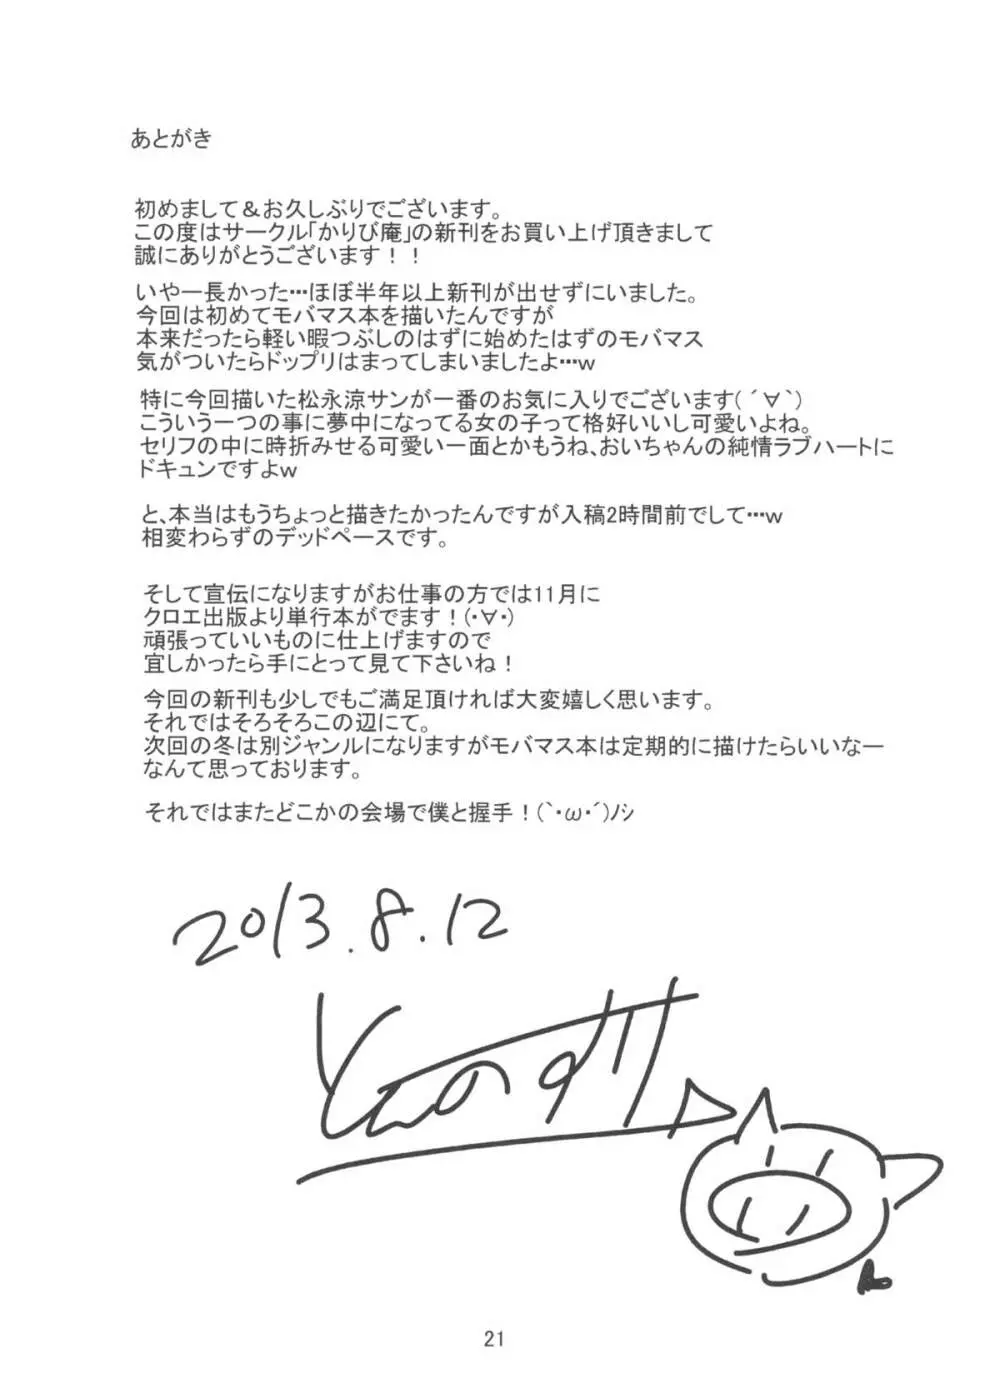 あとがき
初めまして＆お久しぶりでございます。
この度はサークル「かりび庵」の新刊をお買い上げ頂きまして
誠にありがとうございます！！
いやー長かった…ほぼ半年以上新刊が出せずにいました。
今回は初めてモバマス本を描いたんですが
本来だったら軽い暇つぶしのはずに始めたはずのモバマス
気がついたらドップリはまってしまいましたよ…ｗ
特に今回描いた松永涼サンが一番のお気に入りでございます( ´∀｀)
こういう一つの事に夢中になってる女の子って格好いいし可愛いよね。
セリフの中に時折みせる可愛い一面とかもうね、おいちゃんの純情ラブハートに
ドキュンですよｗ
と、本当はもうちょっと描きたかったんですが入稿2時間前でして…ｗ
相変わらずのデッドペースです。
そして宣伝になりますがお仕事の方では11月に
クロエ出版より単行本がでます！(・∀・)
頑張っていいものに仕上げますので
宜しかったら手にとって見て下さいね！
今回の新刊も少しでもご満足頂ければ大変嬉しく思います。
それではそろそろこの辺にて。
次回の冬は別ジャンルになりますがモバマス本は定期的に描けたらいいなー
なんて思っております。
それではまたどこかの会場で僕と握手！(｀・ω・´)ﾉｼ
2013.8.12
21